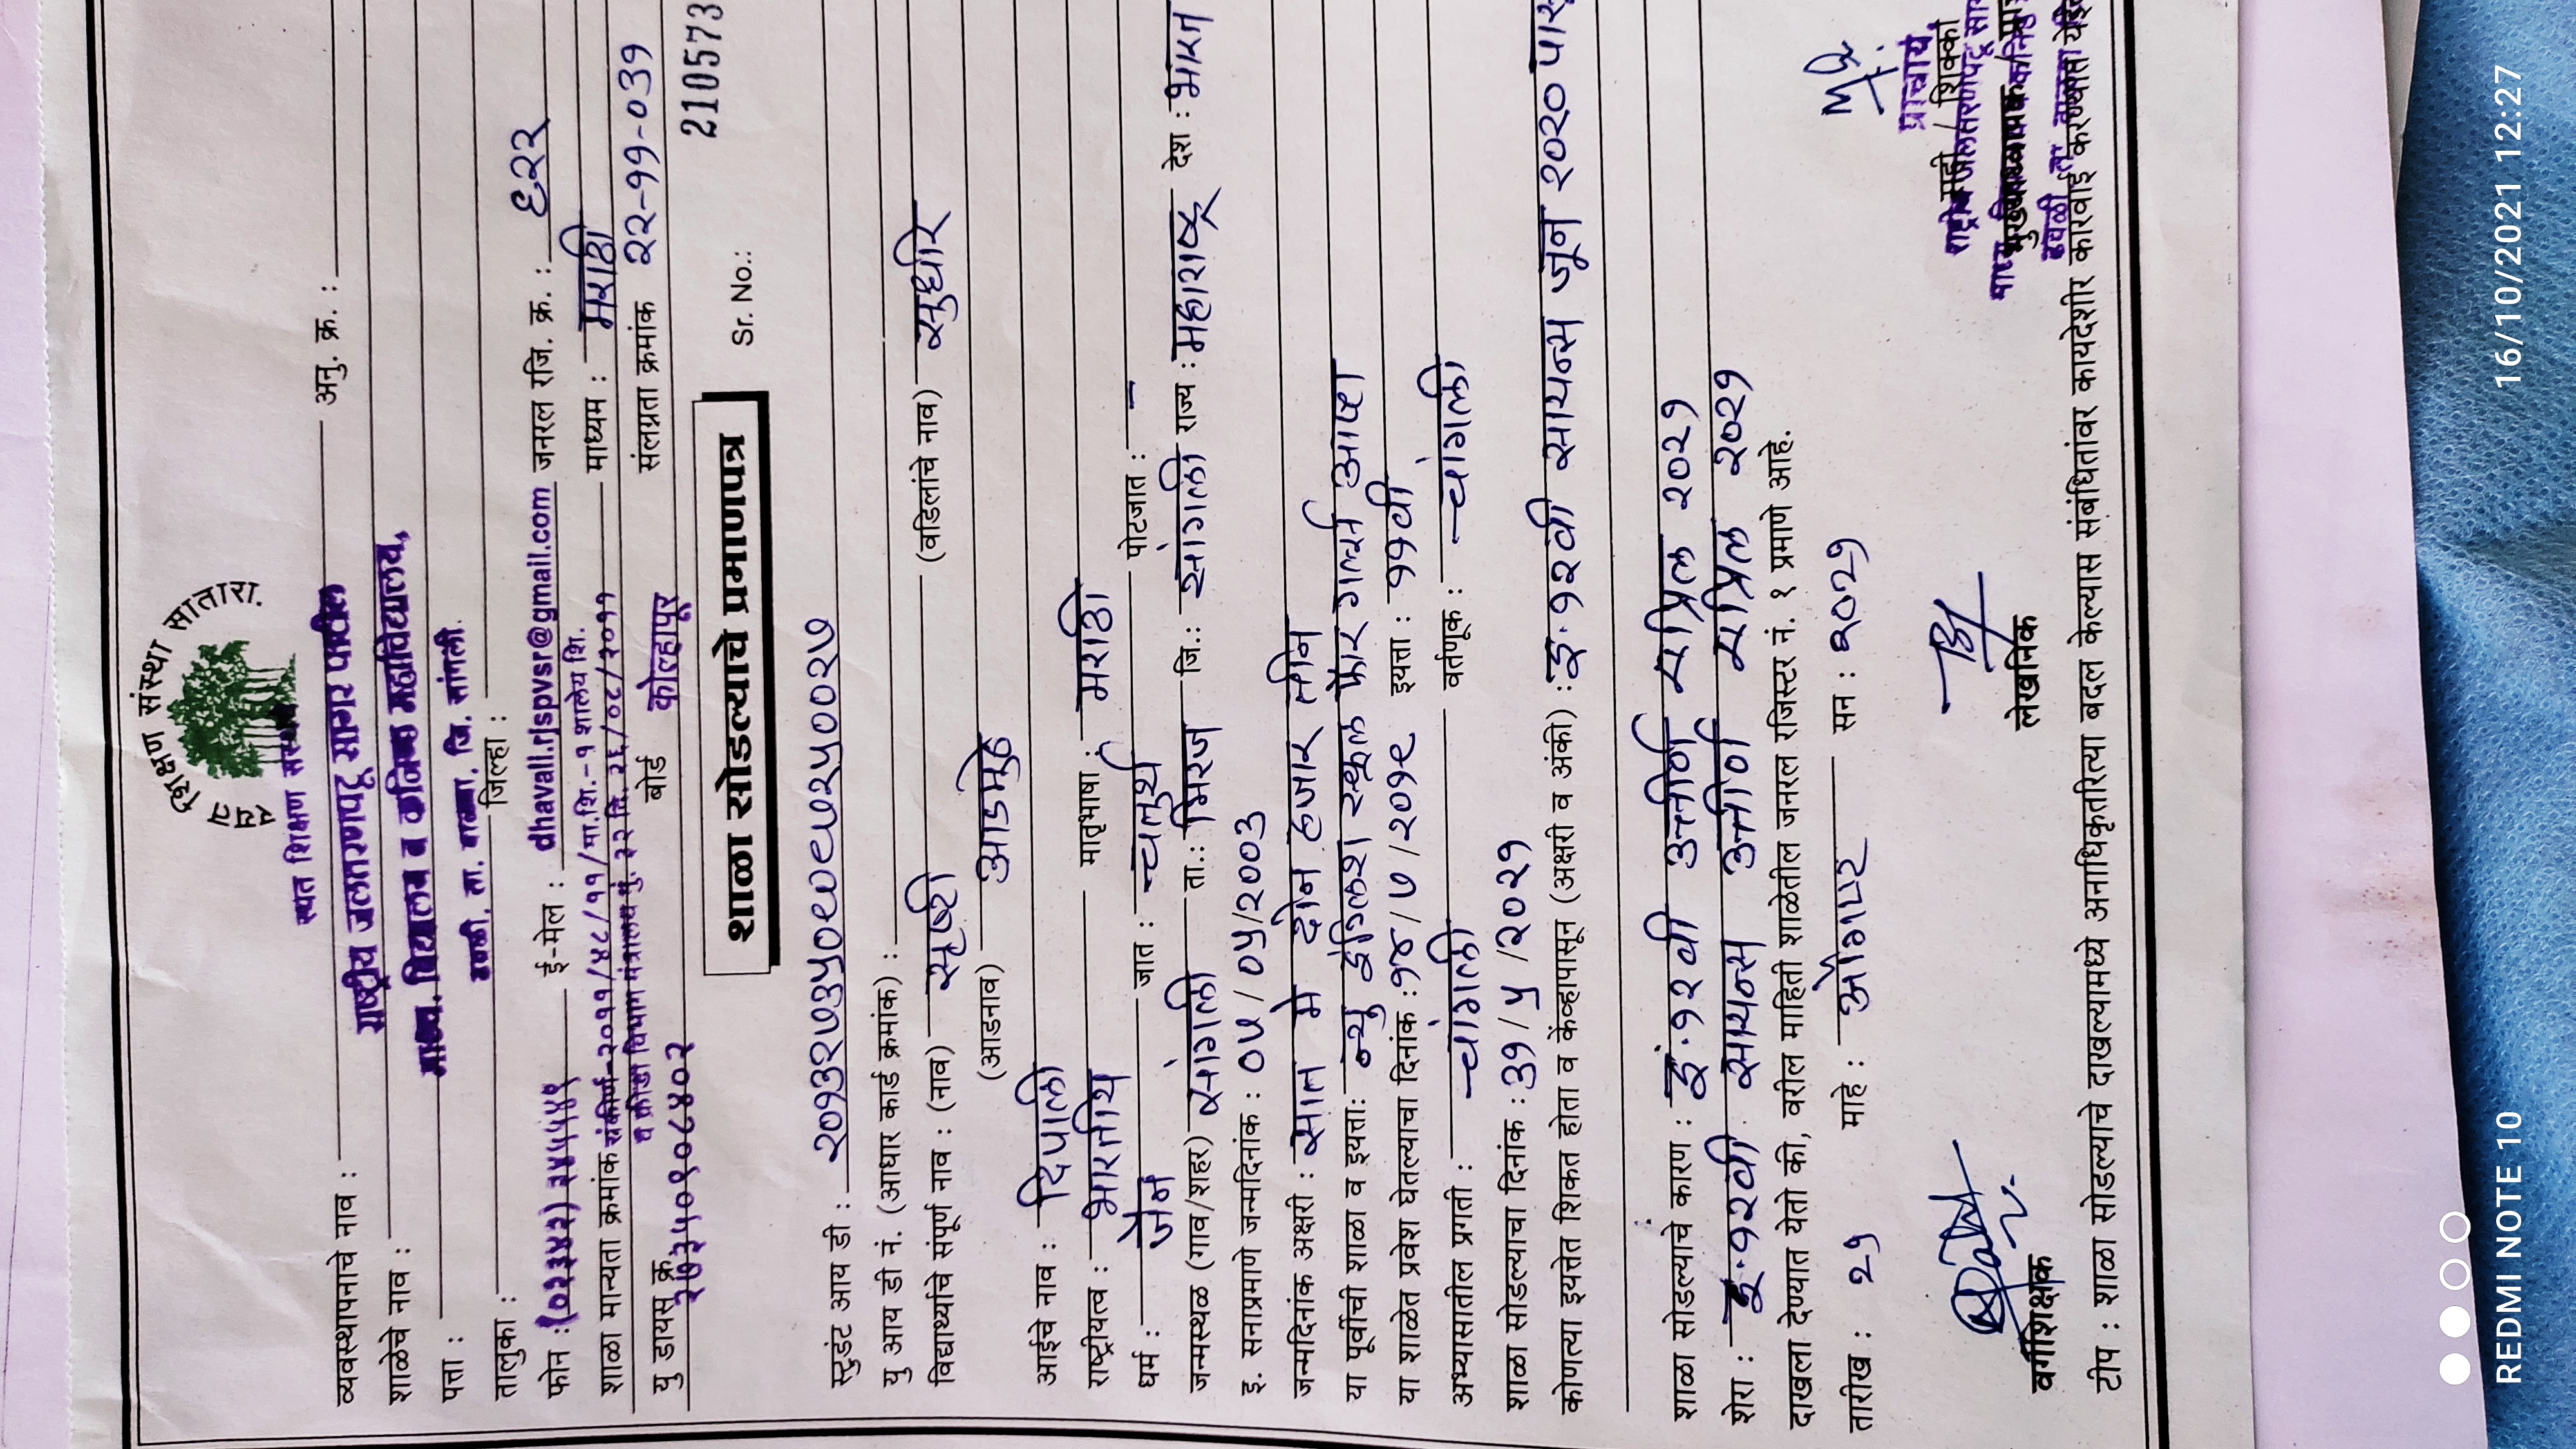 रयत शिक्षण संस्था सातारा.
रयत शिक्षण संस्थेचे
व्यवस्थापनाचे नाव : अनु. क्र. :
राष्ट्रीय जलतरणपटू सागर पाटील
शाळेचे नाव : माध्य. विद्यालय व कनिष्ठ महाविद्यालय,
पत्ता : ढवळी, ता. वाळवा, जि. सांगली.
तालुका : जिल्हा :
फोन : (०२३४२) २४५५४९ ई-मेल : dhavali.rjspvsr@gmail.com जनरल रजि. क्र. : ६२२
शाळा मान्यता क्रमांक संकीर्ण-२०११/४८/११/मा.शि.-१ शालेय शि. माध्यम : मराठी
व क्रीडा विभाग मंत्रालय मुं. ३२ दि. २६/०८/२०११
यु डायस क्र. २७३५०९०८४०२ बोर्ड कोल्हापूर संलग्नता क्रमांक २२-११-०३९
शाळा सोडल्याचे प्रमाणपत्र Sr. No.: 210573
स्टुडंट आय डी : २०१३२७३५०९०८७२५००२७
यु आय डी नं. (आधार कार्ड क्रमांक) :
विद्यार्थ्याचे संपूर्ण नाव : (नाव) सृष्टी (वडिलांचे नाव) सुधीर
(आडनाव) आडमुठे
आईचे नाव : दिपाली
राष्ट्रीयत्व : भारतीय मातृभाषा : मराठी
धर्म : जैन जात : चतुर्थ पोटजात : -
जन्मस्थळ (गाव/शहर) सांगली ता.: मिरज जि.: सांगली राज्य : महाराष्ट्र देश : भारत
इ. सनाप्रमाणे जन्मदिनांक : ०७/०५/२००३
जन्मदिनांक अक्षरी : सात मे दोन हजार तीन
या पूर्वीची शाळा व इयत्ता: न्यु इंग्लिश स्कूल फॉर गर्ल्स आष्टा
या शाळेत प्रवेश घेतल्याचा दिनांक : १८/७/२०१९ इयत्ता : ११वी
अभ्यासातील प्रगती : चांगली वर्तणूक : चांगली
शाळा सोडल्याचा दिनांक : ३१/५/२०२१
कोणत्या इयत्तेत शिकत होता व केंव्हापासून (अक्षरी व अंकी) : इ.१२वी सायन्स जून २०२० पासू
शाळा सोडल्याचे कारण : इ.१२वी उत्तीर्ण एप्रिल २०२१
शेरा : इ.१२वी सायन्स उत्तीर्ण एप्रिल २०२१
दाखला देण्यात येतो की, वरील माहिती शाळेतील जनरल रजिस्टर नं. १ प्रमाणे आहे.
तारीख : २१ माहे : ऑगस्ट सन : २०२१
वर्गशिक्षक लेखनिक सही / शिक्का
प्राचार्य,
राष्ट्रीय जलतरणपटू
टीप : शाळा सोडल्याचे दाखल्यामध्ये अनाधिकृतरित्या बदल केल्यास संबंधितांवर कायदेशीर कारवाई करण्यात
REDMI NOTE 10 16/10/2021 12:27